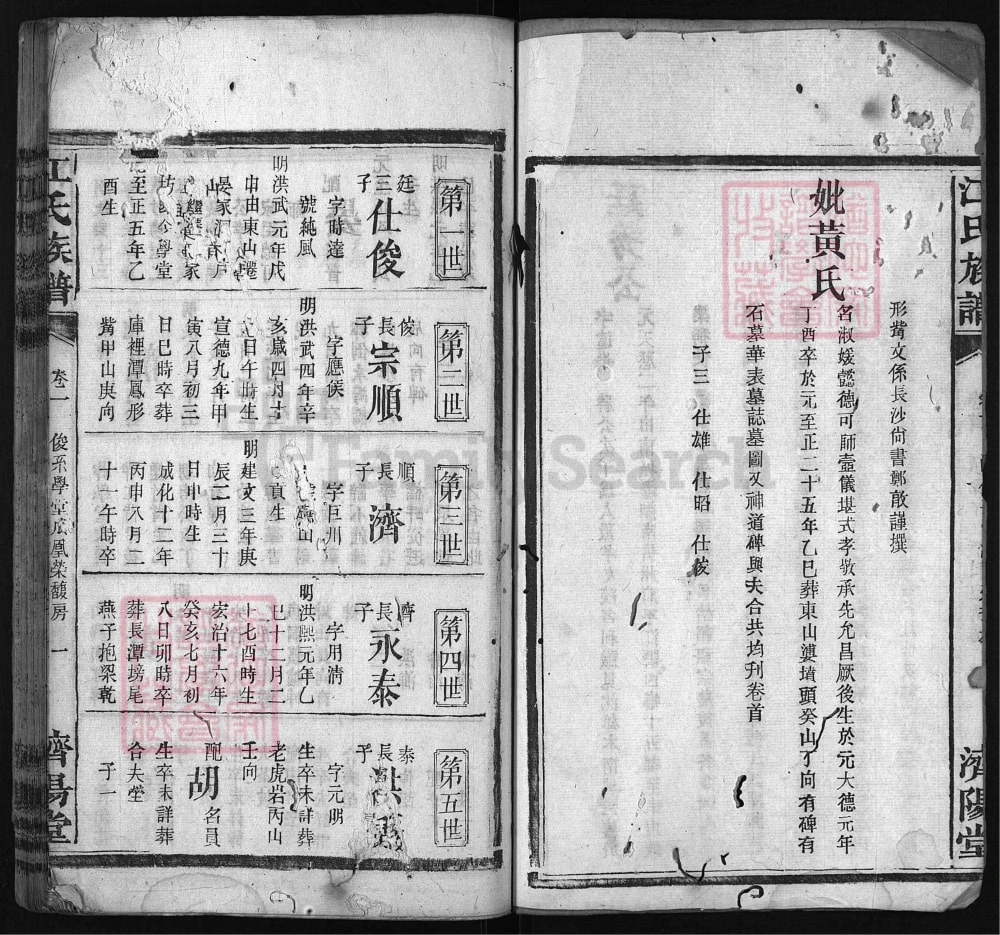 江氏族譜
濟陽堂
形觜文係長沙尙書鄭敢謹撰
妣黃氏
名淑媛懿德可師壼儀堪式孝敬承先允昌厥後生於元大德元年
丁酉卒於元至正二十五年乙巳葬東山婁墳頭癸山丁向有碑有
石墓華表墓誌墓圖又神道碑與夫合共均刊卷首
子三 仕雄 仕昭 仕俊
第一世
廷三子
仕俊
字時達
號純風
明洪武元年戊
申由東山遷
至正五年乙
酉生
第二世
俊長子
宗順
字應候
明洪武四年辛
亥歲四月十
日午時生
宣德九年甲
寅八月初三
日巳時卒葬
庫裡潭鳳形
觜甲山庚向
第三世
順長子
濟
字巨川
山
貢生
明建文三年庚
辰二月三十
日申時生
成化十二年
丙申八月二
十一午時卒
第四世
濟長子
永泰
字用清
明洪熙元年乙
巳十二月二
十七酉時生
宏治十六年
癸亥七月初
八日卯時卒
葬長潭塝尾
燕子抱梁乾
第五世
泰長子
洪
字元明
生卒未詳葬
老虎岩丙山
壬向
配
胡
名員
生卒未詳葬
合夫塋
子一
江氏族譜
卷一
俊系學堂成凰榮馥房
一
濟陽堂
FamilySearch